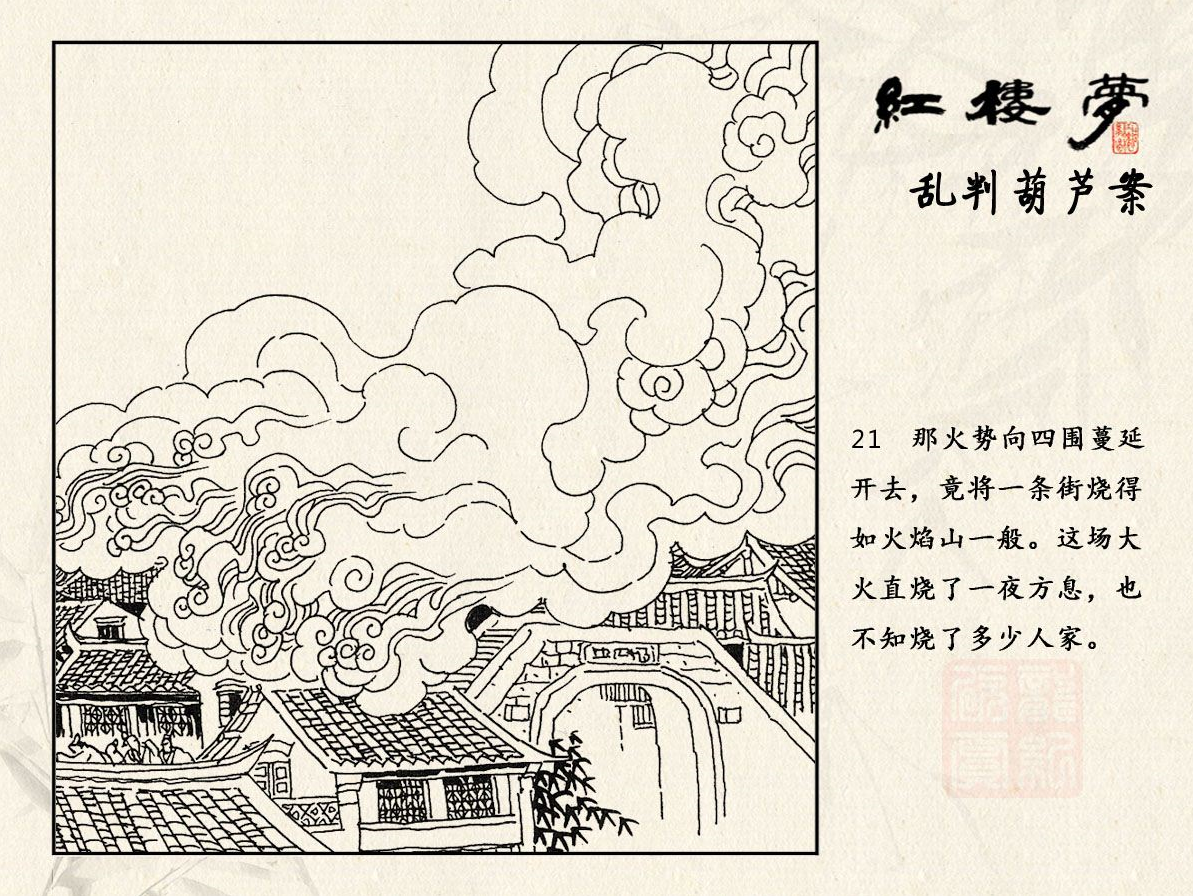 紅樓夢
乱判葫芦案
21 那火势向四围蔓延
开去，竟将一条街烧得
如火焰山一般。这场大
火直烧了一夜方息，也
不知烧了多少人家。